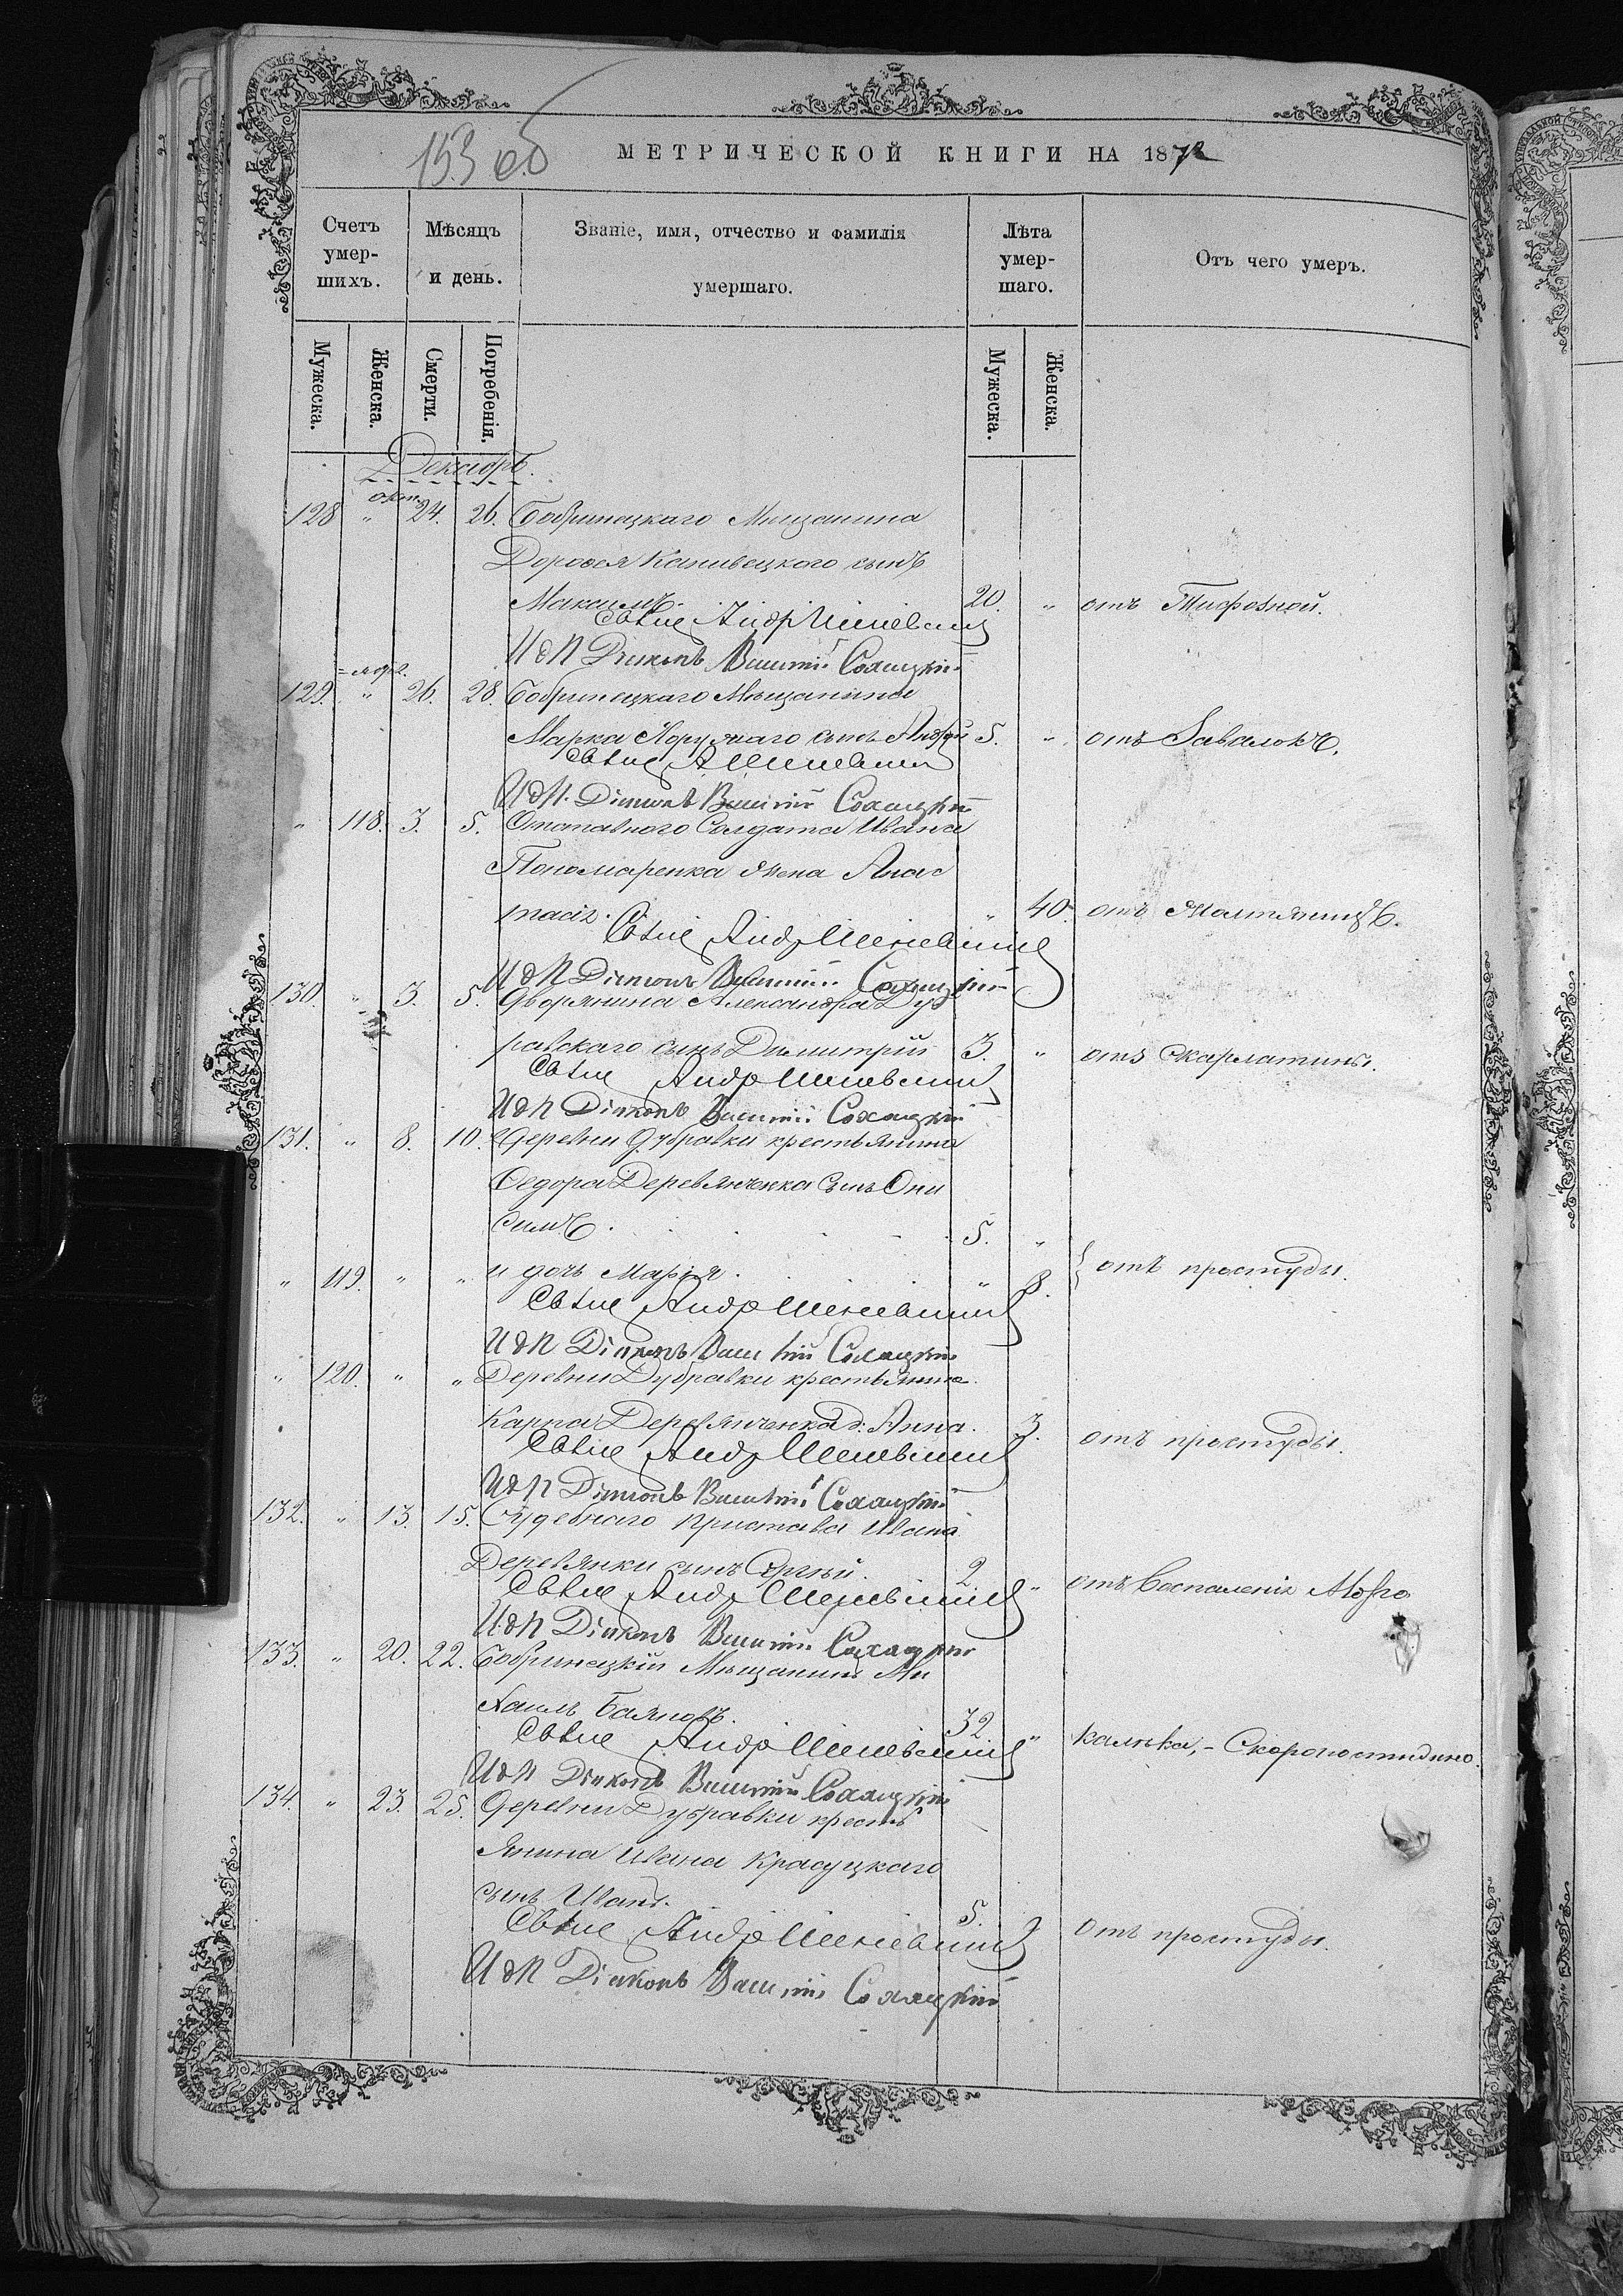 153 об
МЕТРИЧЕСКОЙ КНИГИ НА 1872
Счетъ умер-шихъ.
Мѣсяцъ и день.
Званіе, имя, отчество и фамилія умершаго.
Лѣта умер-шаго.
Отъ чего умеръ.
Мужеска.
Женска.
Смерти.
Погребенія.
Мужеска.
Женска.
Декабрь.
128 " 24. 26. Бобринецкаго Мѣщанина
Дорофея Канивецкого сынъ
Максимъ. 20. " отъ Тифозной.
Свящ Андр
И д П Діаконъ Василій Сохацкій
129. " 26. 28. Бобринецкаго Мѣщанина
Марка сынъ Андрей 5. " отъ Завалокъ.
Свящ А
И д П. Діаконъ Василій Сохацкій
" 118. 3. 5. Отставного Солдата Ивана
Пономаренка жена Анас
тасія. " 40. отъ
Свящ Андр
И д П Діаконъ Василій Сохацкій
130. " 3. 5. Дворянина Александра Дуб
равскаго сынъ Димитрій 3. " отъ Скарлатины.
Свящ Андр
И д П Діаконъ Василій Сохацкій
131. " 8. 10. Деревни Дубравки крестьянина
Федора Деревянченка сынъ Они
симъ. 5. "
" 119. " " и дочь Марія. " 8. } отъ простуды.
Свящ Андр
И д П Діаконъ Василій Сохацкій
" 120. " " Деревни Дубравки крестьянина
Карпа Деревянченка д: Анна. 3. отъ простуды.
Свящ Андр
И д П Діаконъ Василій Сохацкій
132. " 13. 15. Судебнаго Пристава Ивана
Деревянки сынъ Сергѣй. 2 " отъ Воспаленія
Свящ Андр
И д П Діаконъ Василій Сохацкій
133. " 20. 22. Бобринецкій Мѣщанинъ Ми
хаилъ Баяновъ. 32 " калѣка, - Скоропостижно
Свящ Андр
И д П Діаконъ Василій Сохацкій
134. " 23. 25. Деревни Дубравки кресть
янина Ивана Красуцкаго
сынъ Иванъ. 5. отъ простуды.
Свящ Андр
И д П Діаконъ Василій Сохацкій